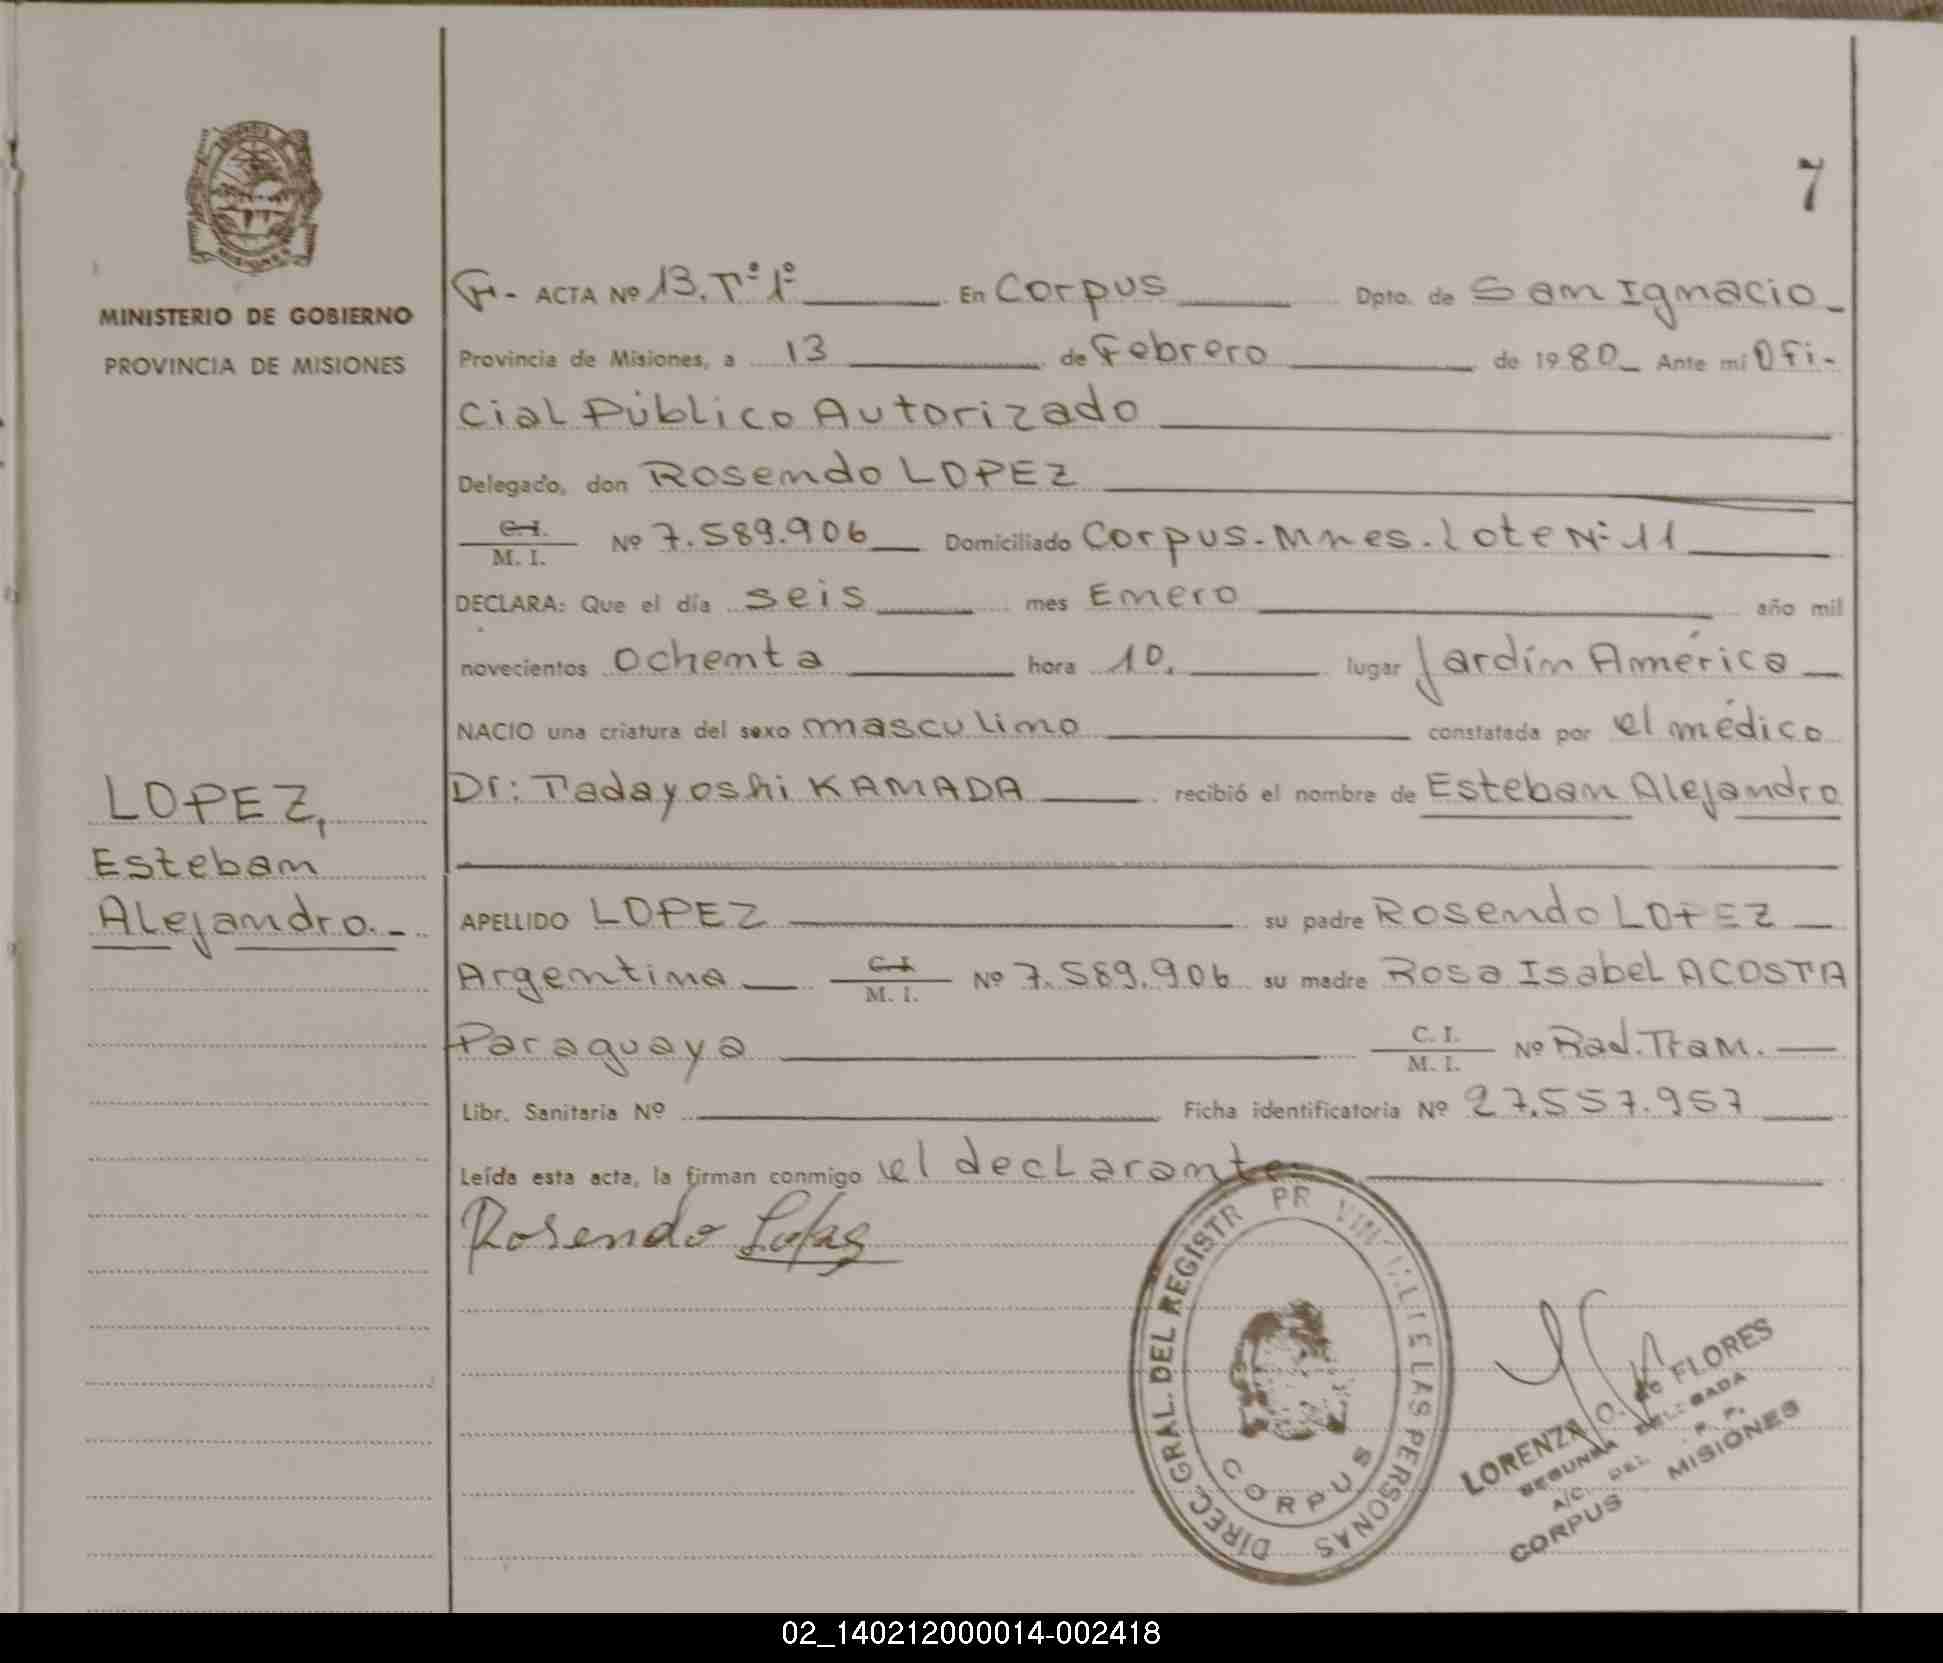 7
MINISTERIO DE GOBIERNO
PROVINCIA DE MISIONES
LOPEZ,
Esteban
Alejandro.-
ACTA Nº 13. Tº 1º En Corpus Dpto. de San Ignacio
Provincia de Misiones, a 13 de Febrero de 1980 Ante mí Ofi-
cial Público Autorizado
Delegado, don Rosendo LOPEZ
C.I. M. I. Nº 7.589.906 Domiciliado Corpus. Mnes. Lote Nº 11
DECLARA: Que el día seis mes Enero año mil
novecientos ochenta hora 10. lugar Jardín América
NACIO una criatura del sexo masculino constatada por el médico
Dr: Tadayoshi KAMADA recibió el nombre de Esteban Alejandro
APELLIDO LOPEZ su padre Rosendo LOPEZ
Argentina C.I. M. I. Nº 7.589.906 su madre Rosa Isabel ACOSTA
Paraguaya C. I. M. I. Nº Rad. Tram.
Libr. Sanitaria Nº Ficha identificatoria Nº 27.557.957
Leída esta acta, la firman conmigo el declarante
Rosendo
DIREC. GRAL. DEL REGISTR PR LAS PERSONAS
CORPUS
LORENZA O. de FLORES
SEGUNDA DELEGADA
A/C. DEL R. P.
CORPUS MISIONES
02_140212000014-002418